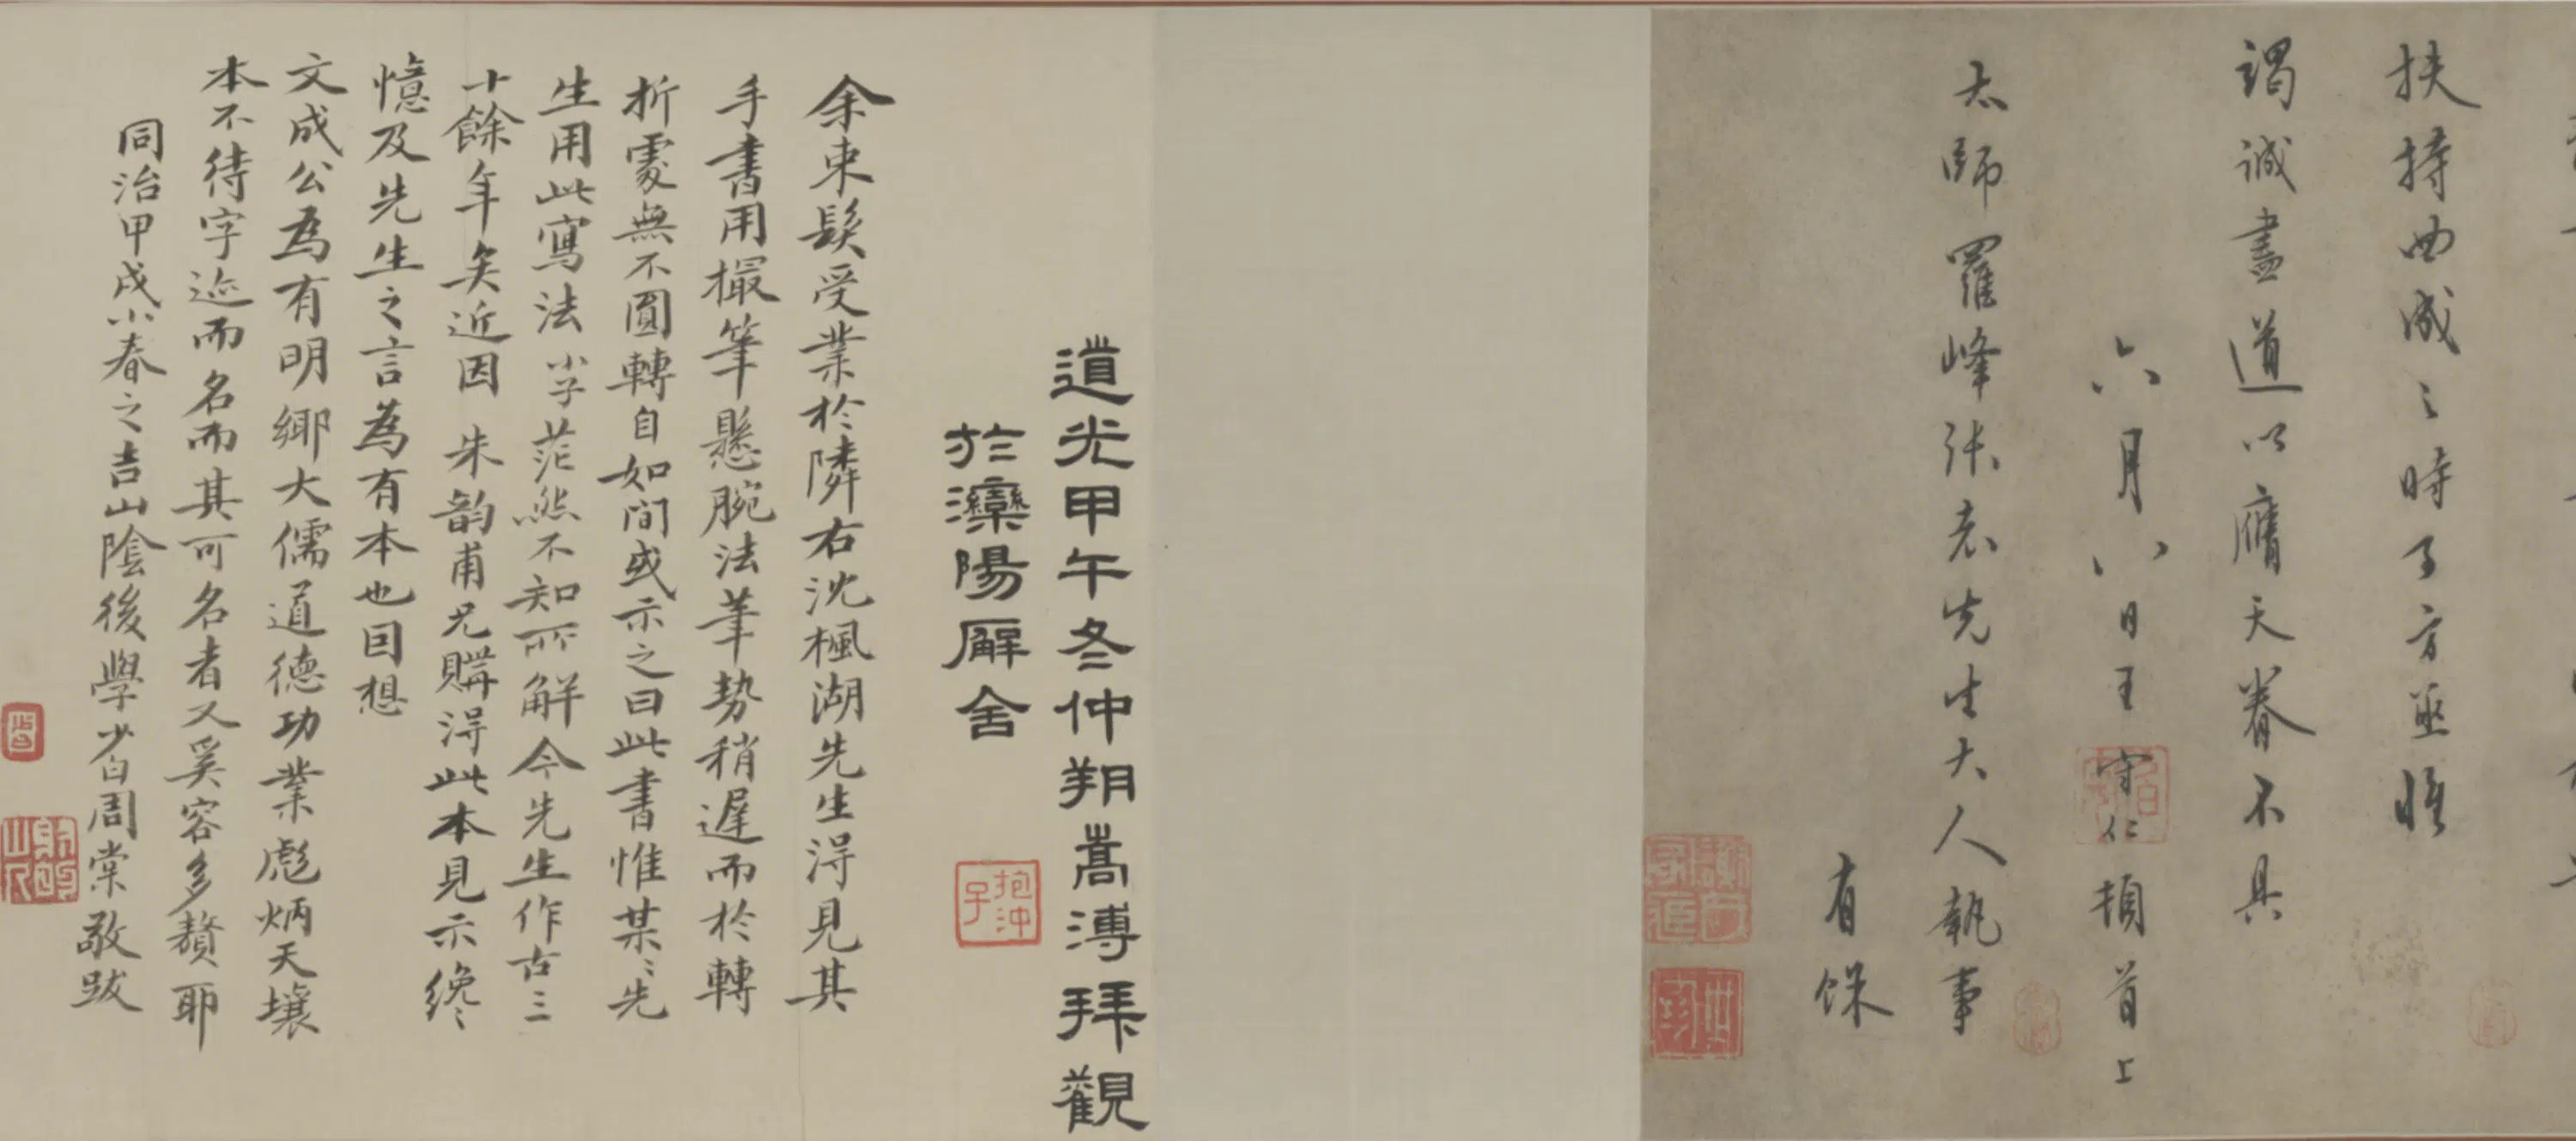 扶持曲成之時了方亟睢
竭誠盡道以膺天眷不具
六月八日王守仁頓首上
太師羅峰張老先生大人執事
有餘
道光甲午冬仲朔嵩溥拜觀
於灤陽廨舍
抱沖子
余束髮受業於隣右沈楓湖先生淂見其
手書用撮筆懸腕法筆势稍遲而於轉
折處無不圓轉自如間或示之曰此書惟某〻先
生用此寫法小子茫然不知所解今先生作古三
十餘年矣近因朱韵甫兄購淂此本見示纔
憶及先生之言為有本也囙想
文成公為有明鄉大儒道德功業彪炳天壤
本不待字迹而名而其可名者又奚容多贅耶
同治甲戌小春之吉山陰後學少白周棠敬跋